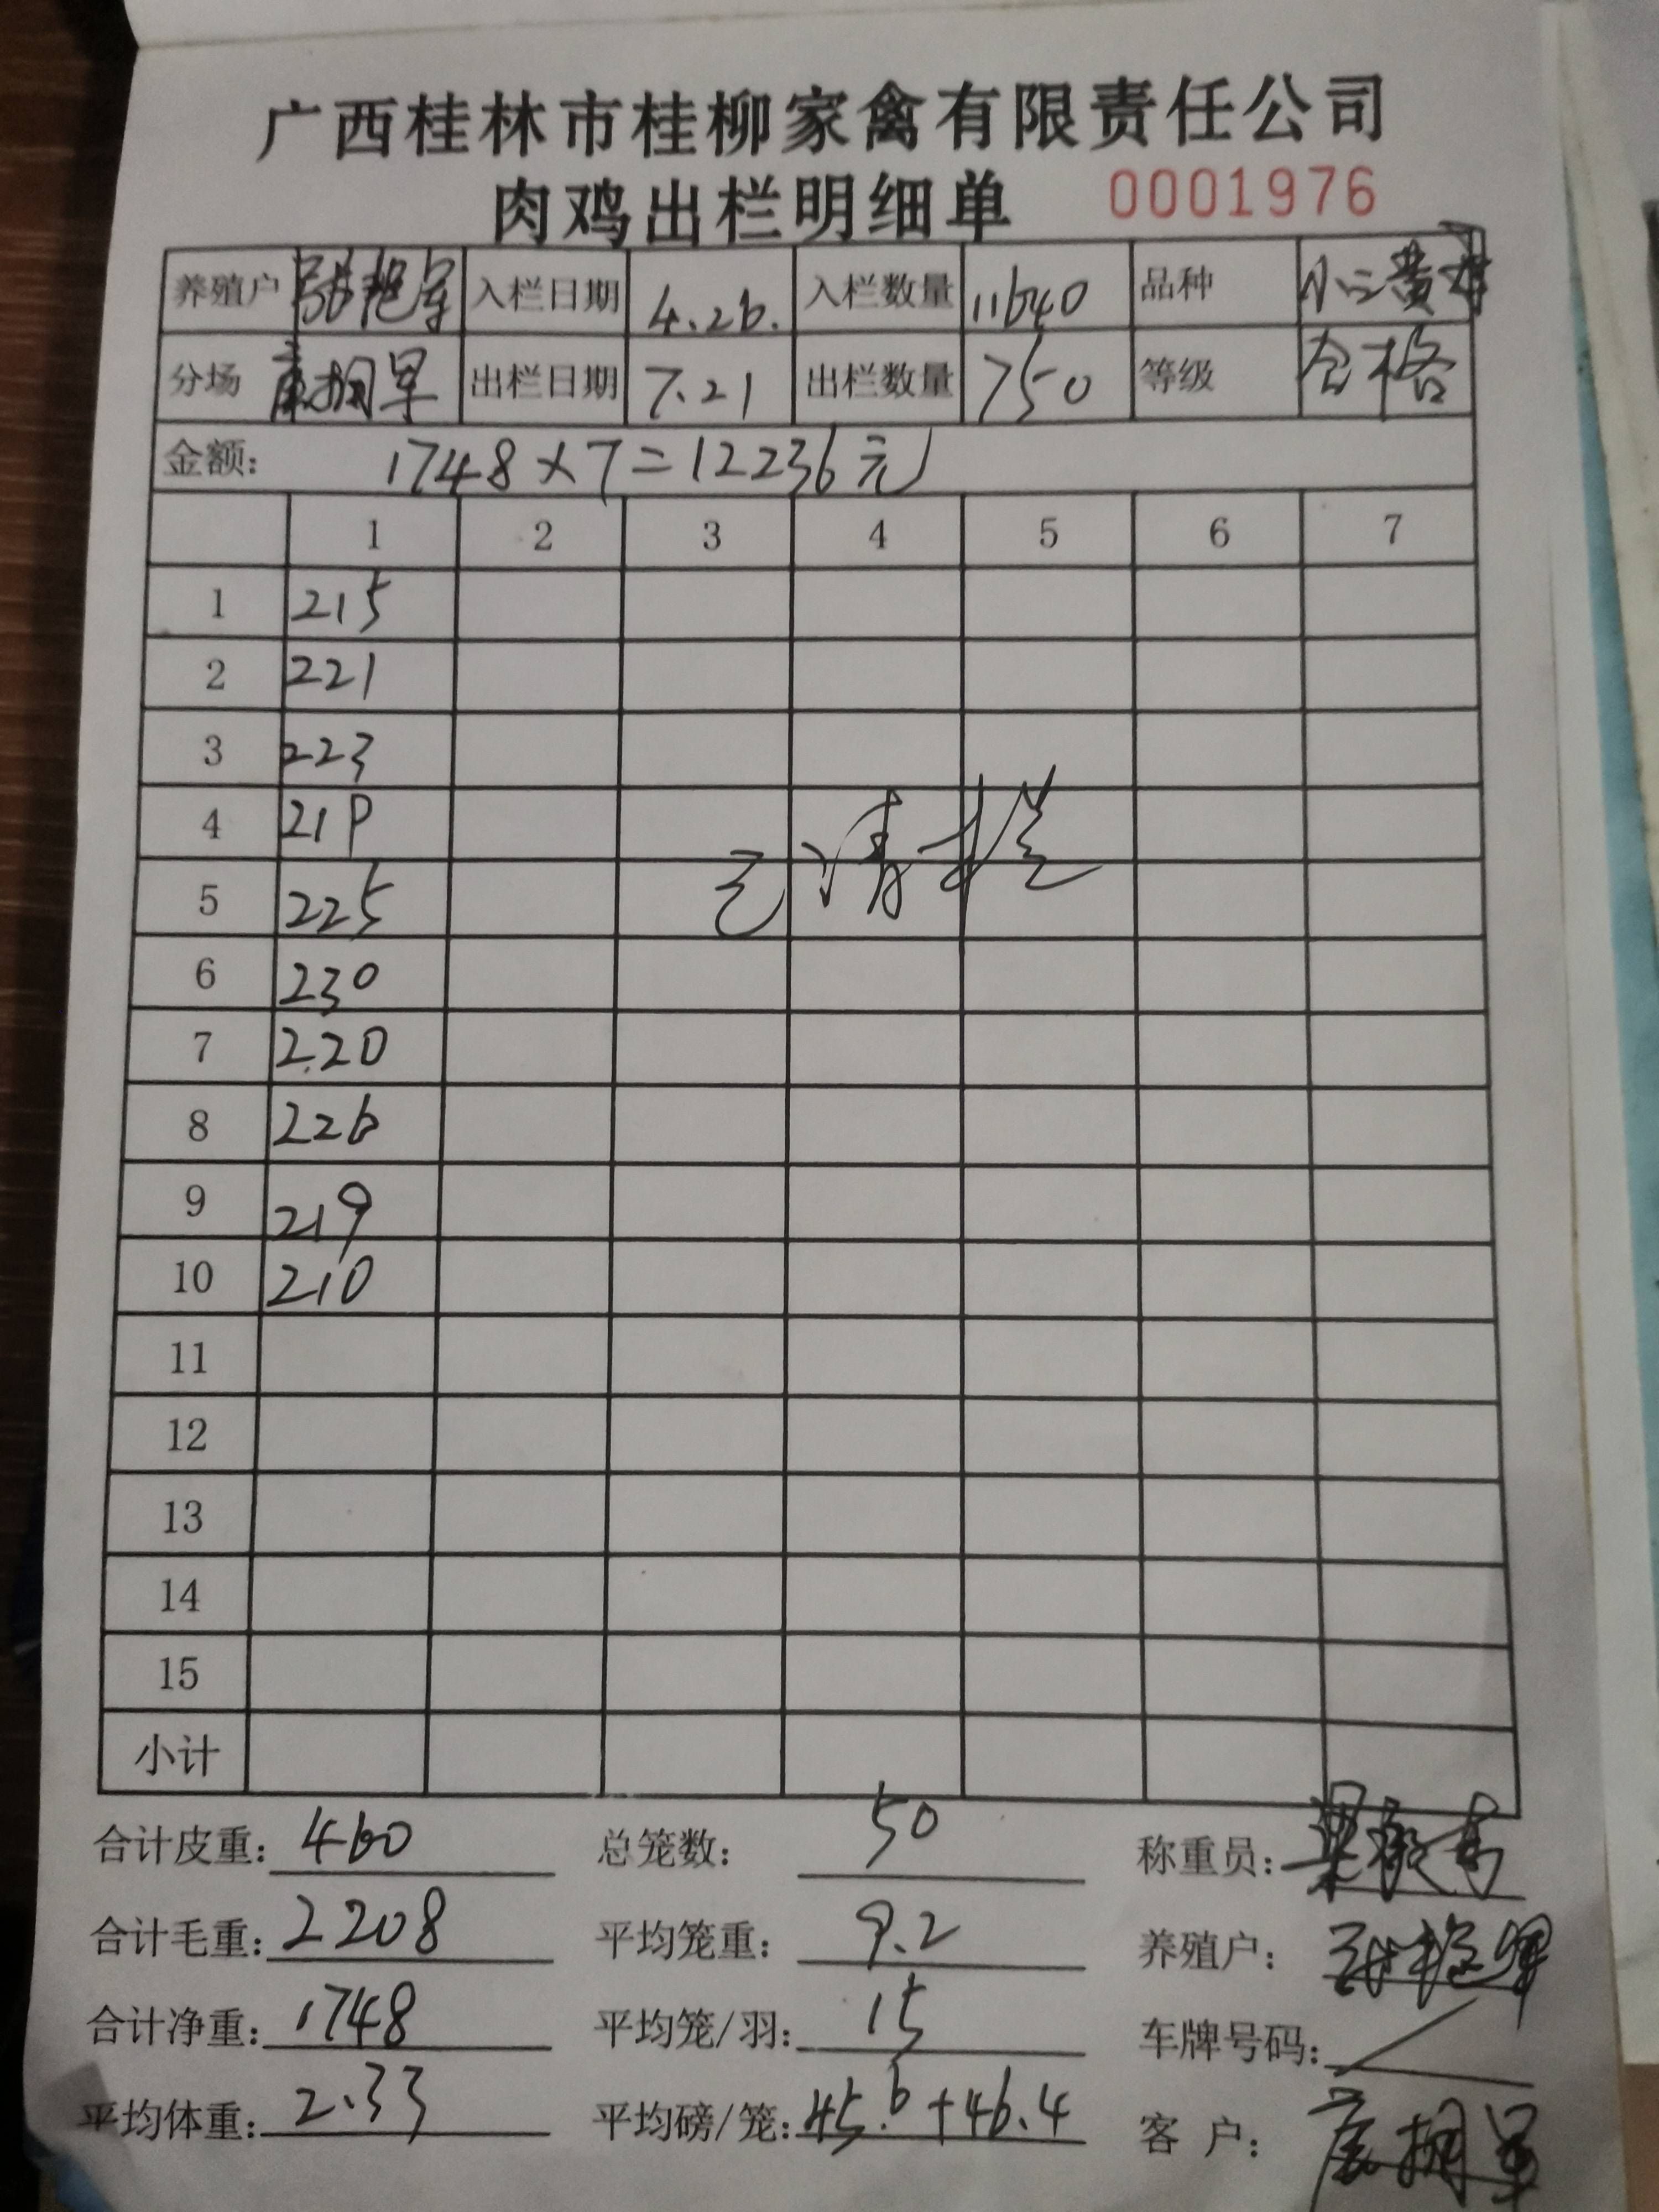 广西桂林市桂柳家禽有限责任公司
肉鸡出栏明细单 0001976
养殖户 入栏日期 4.26. 入栏数量 11640 品种
分场 出栏日期 7.21 出栏数量 750 等级 合格
金额: 1748×7=12236元
1 2 3 4 5 6 7
1 215
2 221
3 223
4 219
5 225
已清栏
6 230
7 220
8 226
9 219
10 210
11
12
13
14
15
小计
合计皮重: 460 总笼数: 50 称重员:
合计毛重: 2208 平均笼重: 9.2 养殖户:
合计净重: 1748 平均笼/羽: 15 车牌号码: /
平均体重: 2.33 平均磅/笼: 45.6+46.4 客 户: